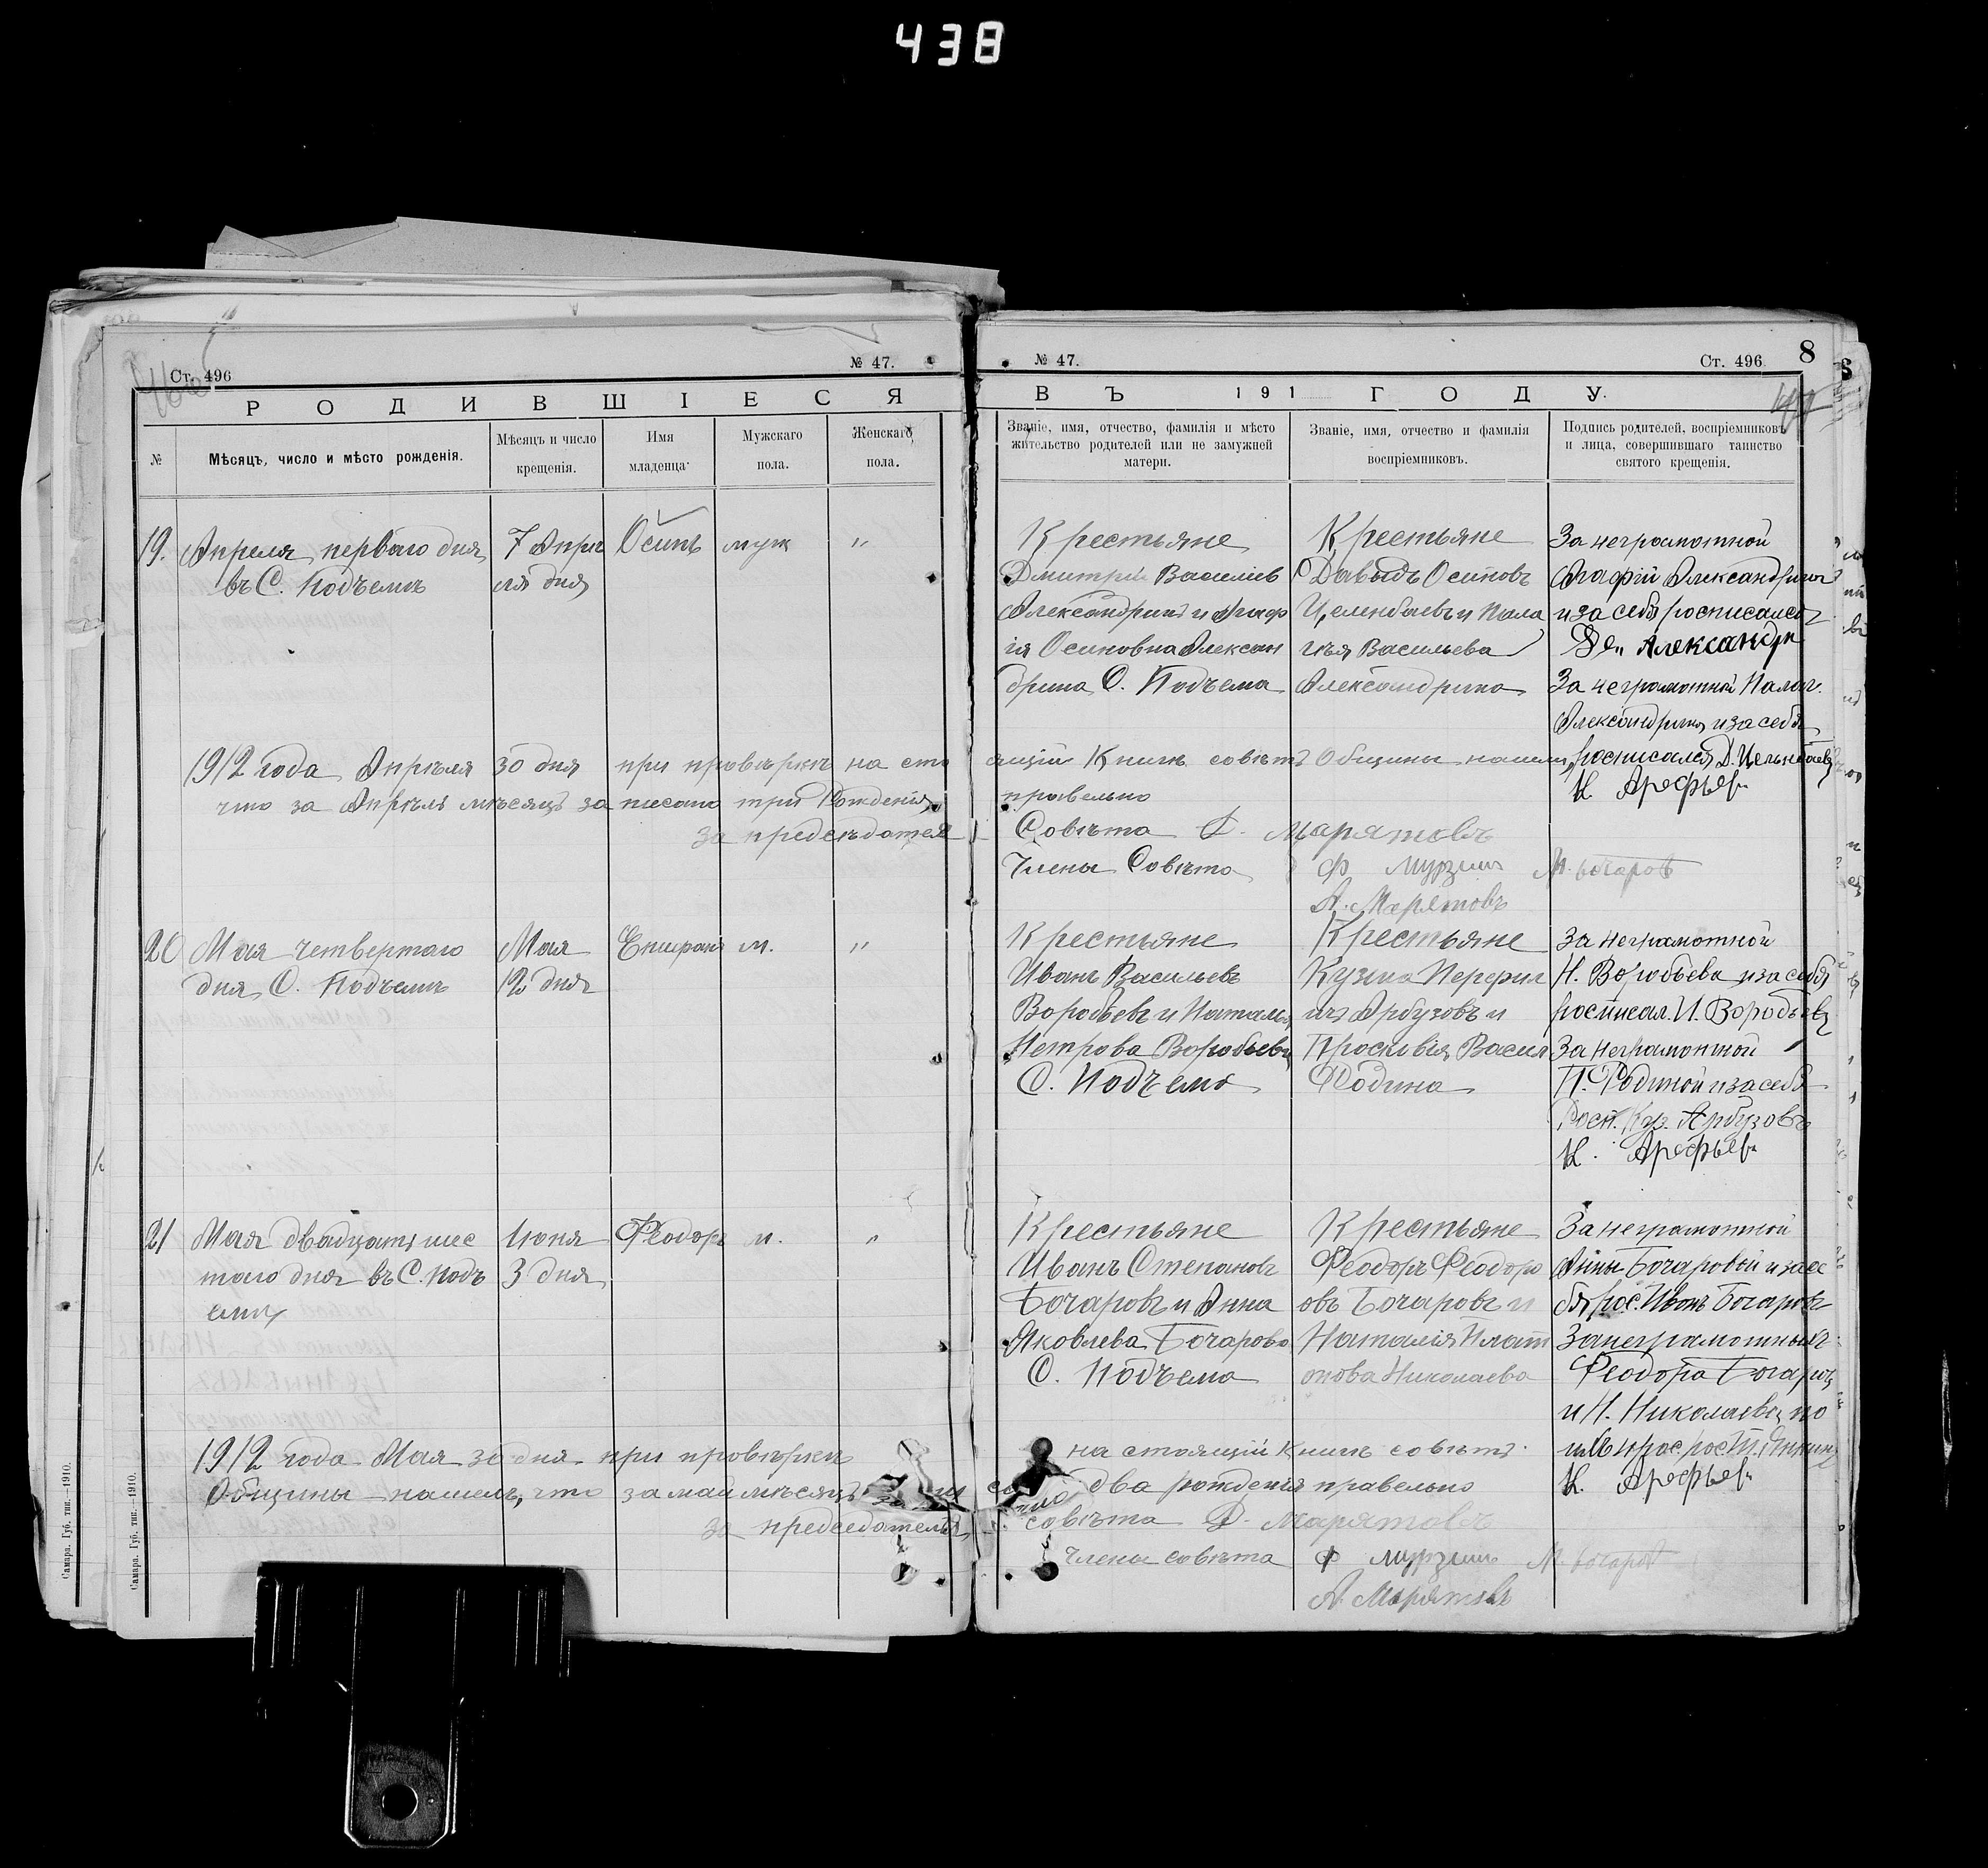 438
Ст. 496
№ 47.
РОДИВШІЕСЯ
№
Мѣсяцъ, число и мѣсто рожденія.
Мѣсяцъ и число крещенія.
Имя младенца.
Мужскаго пола.
Женскаго пола.
№ 47.
Ст. 496.
8
ВЪ 191 ГОДУ.
Званіе, имя, отчество, фамилія и мѣсто
жительство родителей или не замужней
матери.
Званіе, имя, отчество и фамилія
воспріемниковъ.
Подпись родителей, воспріемниковъ
и лица, совершившаго таинство
святого крещенія.
19.
Апреля перваго дня
въ С. Подъемъ
7 Апре
ля дня
Осипъ
муж
"
Крестьяне
Дмитрій Василіев
Александринъ и Агаф
ія Осиповна Алексан
дрина С. Подъема
Крестьяне
Давыдъ Осиповъ
Целенбаевъ и Пела
гѣя Васильева
Александрина
За неграмотной
Агафій Александрина
и за себя росписался
Александри
За неграмотной Палаг.
Александрина и за себя
росписался Д. Цельнебаевъ
Н. Арефьев
1912 года Апрѣля 30 дня при провѣркѣ на сто
ящій Книгѣ совѣтъ Общины нашли,
что за Апрѣль мѣсяцъ записано три Рожденія
правельно
За предсѣдателя
Совѣта Д. Марятовъ
Члены Совѣта Ф Мурзин М. Бочаров
А. Марятовъ
20
Мая четвертаго
дня С. Подъемъ
Мая
12 дня
Епифан
м.
"
Крестьяне
Иванъ Васильевъ
Воробьевъ и Наталья
Петрова Воробьева
С. Подъема
Крестьяне
Кузма Перфил
ичъ Арбузовъ и
Просковія Васил
Фодина
За неграмотной
Н. Воробьева и за себя
росписал. И. Воробьевъ
За неграмотной
П. Фодиной и за себя
Росп. Куз. Арбузовъ
Н. Арефьев
21
Мая двадцать шес
того дня въ С. Подъ
емъ
Июня
3 дня
Феодоръ
м.
"
Крестьяне
Иванъ Степановъ
Бочаровъ и Анна
Яковлева Бочарова
С. Подъема
Крестьяне
Феодоръ Феодоро
овъ Бочаровъ и
Наталія Плат
онова Николаева
За неграмотной
Анны Бочаровой и за се
бя рос. Иван Бочаровъ
За неграмотныхъ
Феодора Бочаров
и Н. Николаевой по
Н. Арефьев
1912 года Мая 30 дня при провѣркѣ
на стоящій Книгѣ совѣтъ
Общины нашелъ, что за май мѣсяцъ
два рожденія правельно
за председателя
совѣта Д. Марятовъ
члены совѣта Ф Мурзин М. Бочаров
А. Марятовъ
Самара. Губ. тип.—1910.
Самара. Губ. тип.—1910.